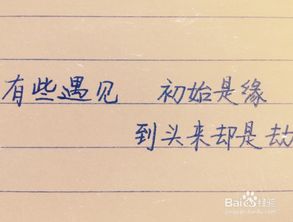 有些遇见 初始是缘
到头来却是劫
Baidu经验